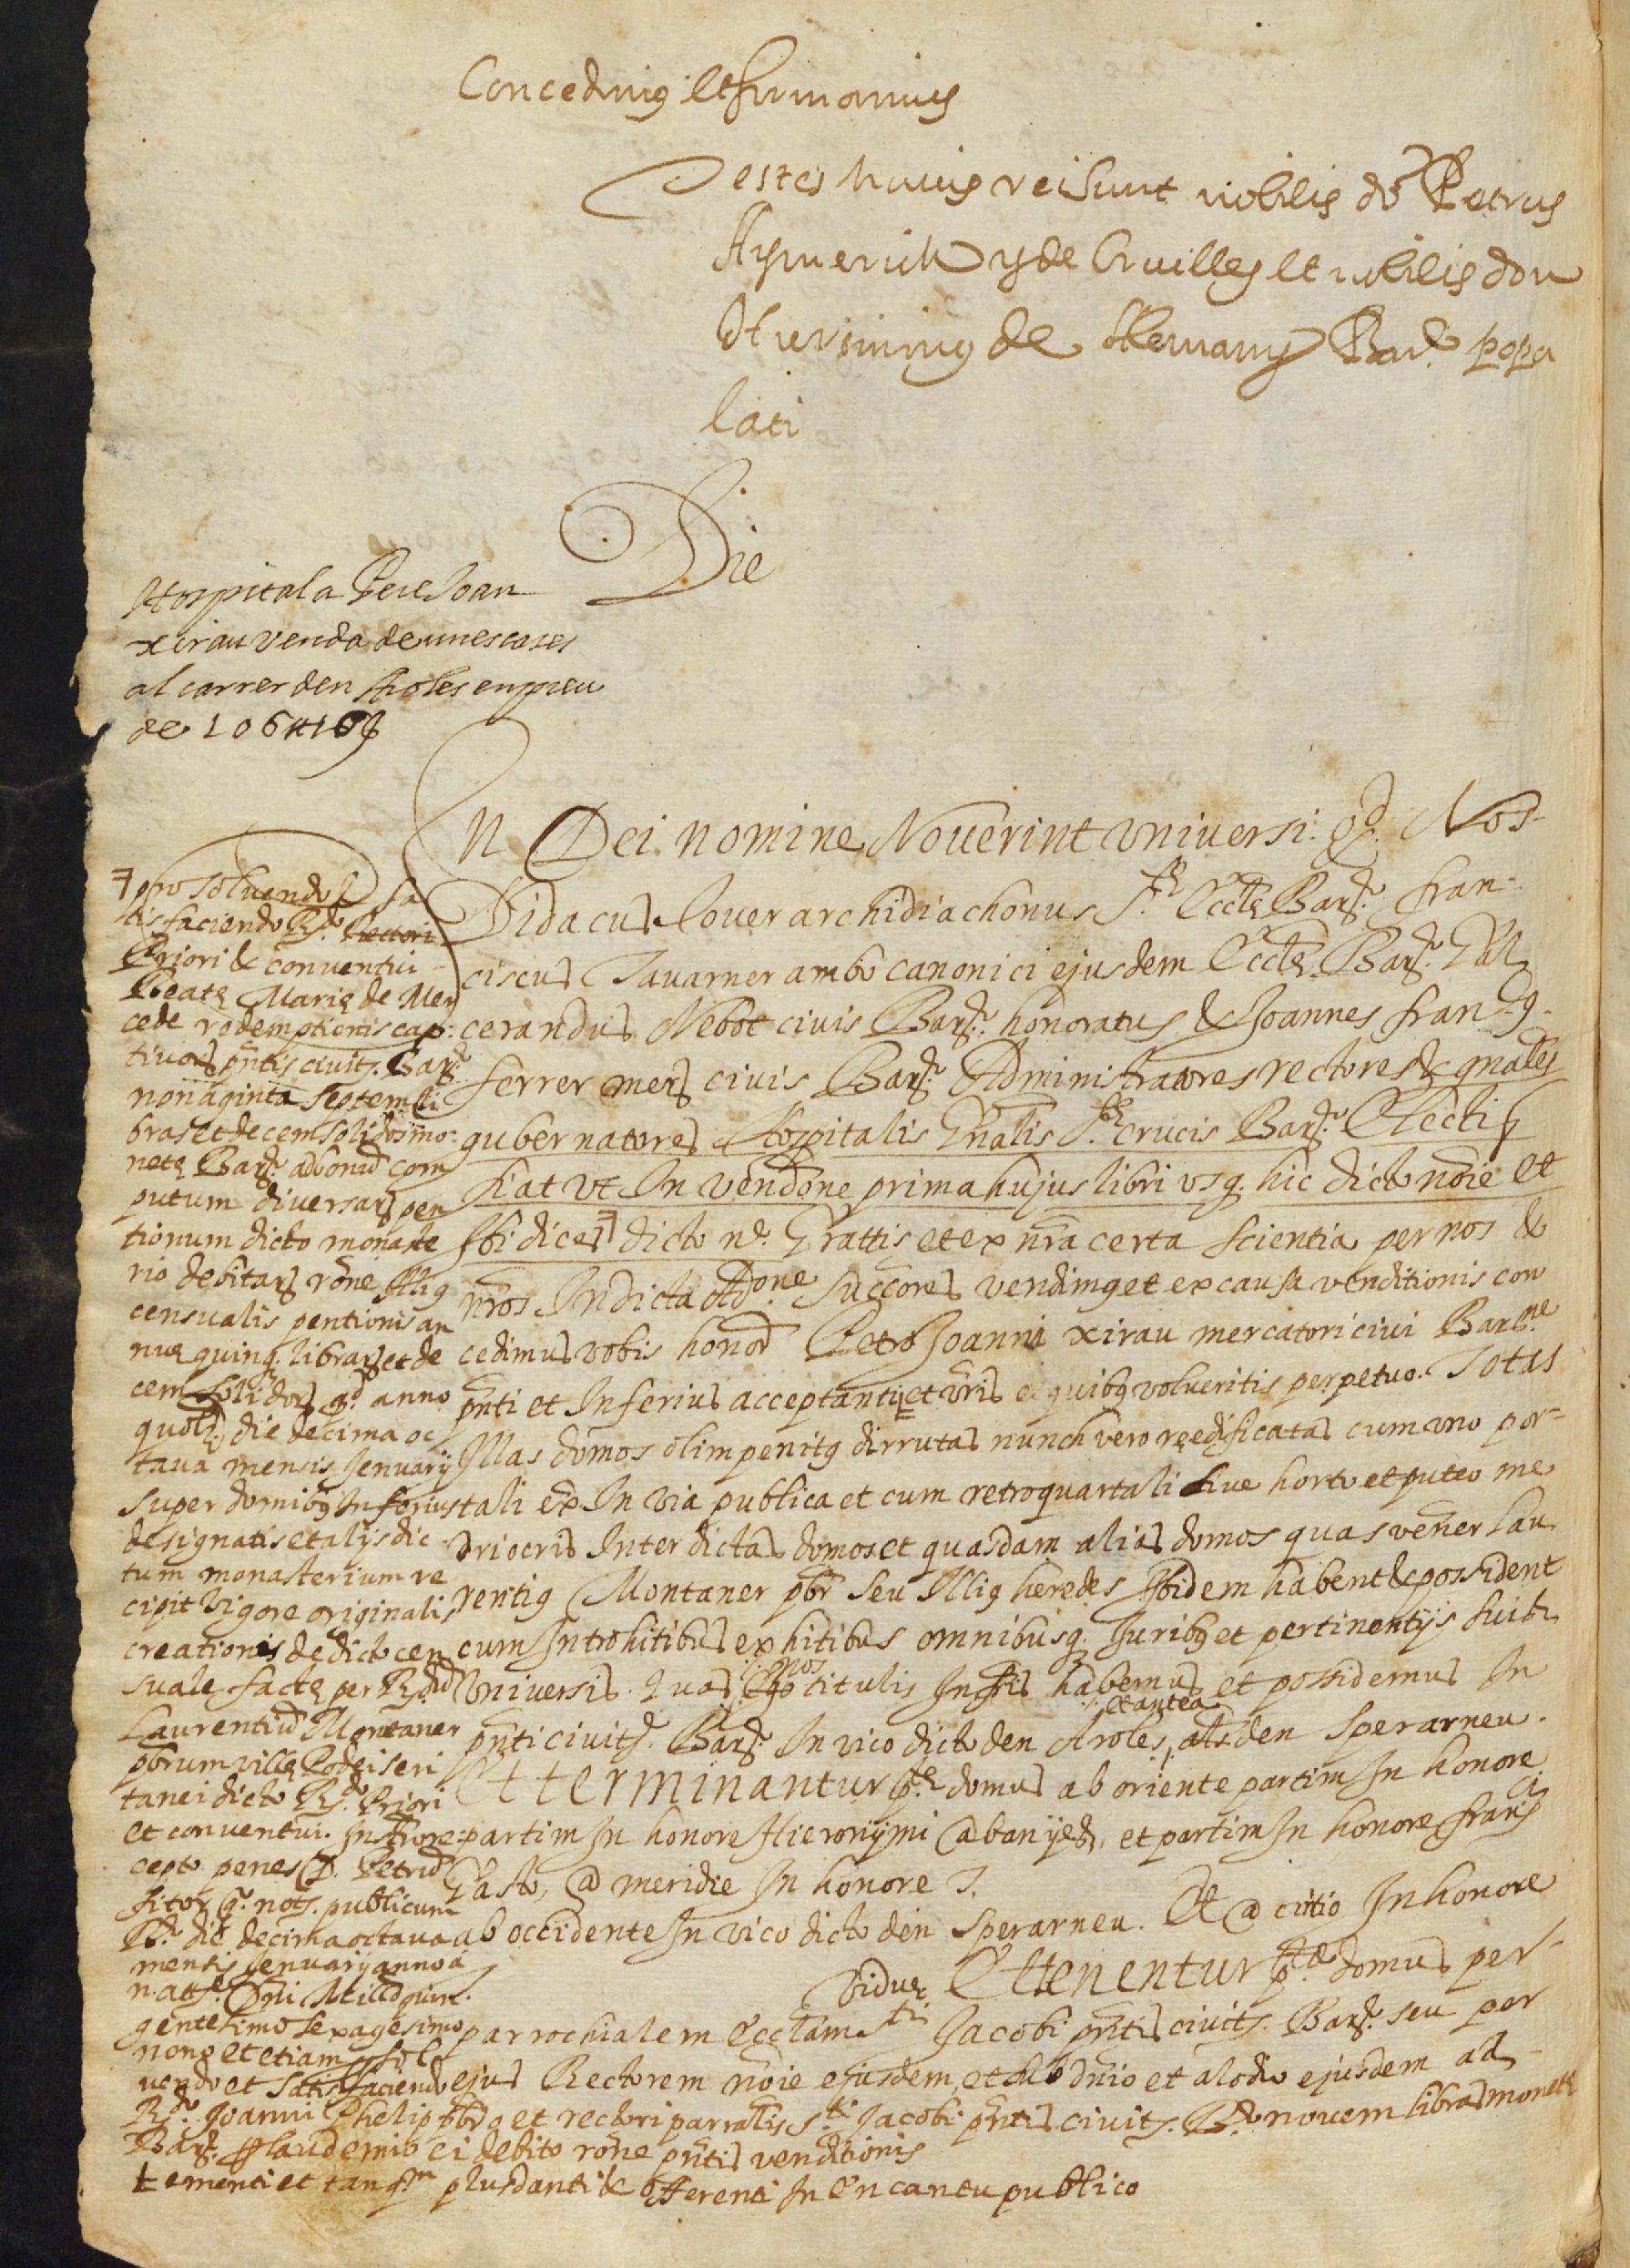 Concedimus et firmamus
Testes huius rei sunt nobilis do Petrus
Aymerich y de Cruilles et nobilis don
de Alemany Bar. popu
lati
Die
Hospital a Pere Joan
xirau venda de unes cases
al carrer den Aroles en preu
de 106
In Dei nomine Noverint universi qd. Nos
Didacus Jover archidiachonus Stę Ecctę Barę. fran-
ciscus Tavarner ambo canonici ejusdem Ecctę Barę. Gal
cerandus Nebot civis Barę. honoratus & Joannes fran.
ferrer mers civis Barę. Administratores rectores & gnales
gubernatores Hospitalis Gnalis Stę crucis Barę. Electi
fiat vt In vendone prima hujus libri vsq. hic dicto noie et
Ibi dices dicto ne. Grattis et ex nra certa scientia per nos &
nros In dicta Adone succores vendimus et ex causa venditionis con
cedimus vobis honor Petro Joanni xirau mercatori civi Barne
pnti et Inferius acceptanti et vris et quibus volueritis perpetuo. Totas
Illas domos olim penitus dirrutas nunch vero reedificatas cum uno por-
tali ex. In via publica et cum retroquartali sive horto et puteo me
driocris Inter dictas domos et quasdam alias domos quas vener Lau
rentius Montaner pbr seu Illius heredes Ibidem habent & possident
cum Introhitibus exhitibus omnibusq. Iuribus et pertinentijs suis
Universis. Quas nos titulis Infris habemus et possidemus In
pnti civits. Barę. In vico dicto den Aroles, et antea als den Sperarneu.
Et terminantur pte. domus ab oriente partim In honore
partim In honore Hieronymi Cabanyes, et partim In honore franci
Gasto, a meridie In honore J.
ab occidente In vico dicto den Sperarneu. Et a citio In honore
Viduę Et tenentur pte. domus per-
parrochialem Ecctam Sti Jacobi pntis civits. Barę. seu per
ejus Rectorem noie ejusdem, et sub dnio et alodio ejusdem ad
7 pro solvendo & sa
tisfaciendo Rdo. Rectori
Priori & conventui
Beatę Marię de Mer
cede redemptionis cap-
tivors pntis civits. Barę.
nonaginta septem li
bras et decem solidos mo-
netę Barę. ad bonu com
putum diversars pen
tionum dicto monaste
rio debitars rone Illius
censualis pentionis an
nuę quinq. librars et de
cem solidors qd. anno
quolt. die decima oc
tava mensis Jenuarij
super domibus Inferius
designatis et alijs dic
tum monasterium re
cipit vigore originalis
creationis de dicto cen
suale factę per Rdu
Laurentiu Montaner
pbrum villę
tanei dicto Rdo. Priori
et conventui. Instro re-
cepto penes D. Petru
fitor q. not. publicum
Be. die decima octava
mensis Jenuarij anno a
natte. Dni Mill quin-
gentesimo sexagesimo
nono et etiam sol
vendo et satisfaciendo
Rdo. Joanni Phelip pbro et rectori parralis Sti Jacobi pntis civits. Be. novem libras monetę
Barę. p laudemio ei debito rone pntis venditionis
Ementi et tanqm plus danti & offerenti In Encantu publico